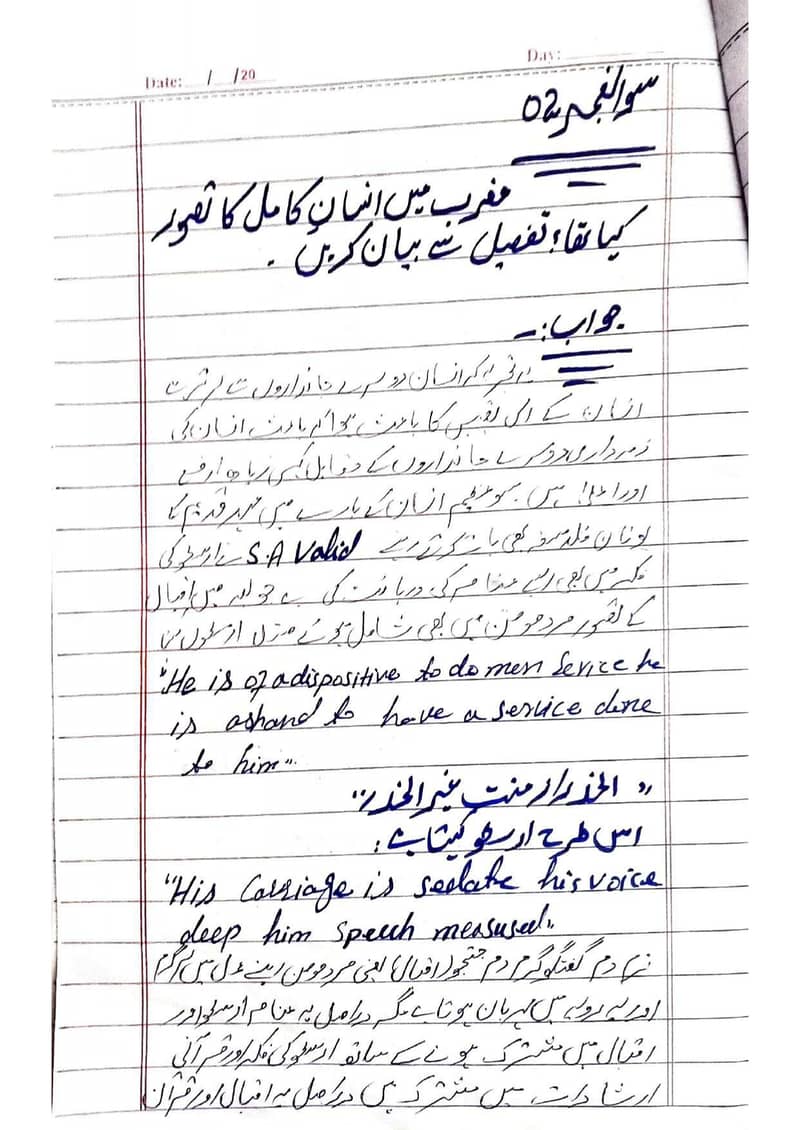 Date: / /20 Day:
سوالنمبر02
مغرب میں انسانِ کامل کا تصور
کیا تھاء تفصیل سے بیان کریں ۔
جواب:-
انسان دوسرے جانداروں سے
انسان کے اس کا باعث ہوا کہ انسان کی
ذمہ داری دوسرے جانداروں کے مقابل کہیں زیادہ ارفع
اور اعلیٰ ہیں انسان کے بارے میں عہد قدیم کا
یونان فلسفہ بھی بات کرتے رہے S.A Valid نے ارسطو کی
فکر میں بھی کی دریافت کی ہے جو بعد میں اقبال
کے تصور مردِ مومن میں بھی شامل ہوئے
"He is of a dispositive to do men Serice he
is ashand to have a service done
to him"
"الحذر از منتِ غیر الحذر"
اس طرح ارسطو کہتا ہے:
"His Carriage is sedate his voice
deep him speech measused"
نرم دم گفتگو گرم دم جستجو (اقبال) یعنی مردِ مومن اپنے عمل میں سرگرم
اور رویہ میں مہربان ہوتا ہے مگر دراصل یہ عناصر ارسطو اور
اقبال میں مشترک ہونے کے ساتھ ارسطو کی فکر اور قرآنی
ارشادات میں مشترک ہیں دراصل یہ اقبال اور قرآن